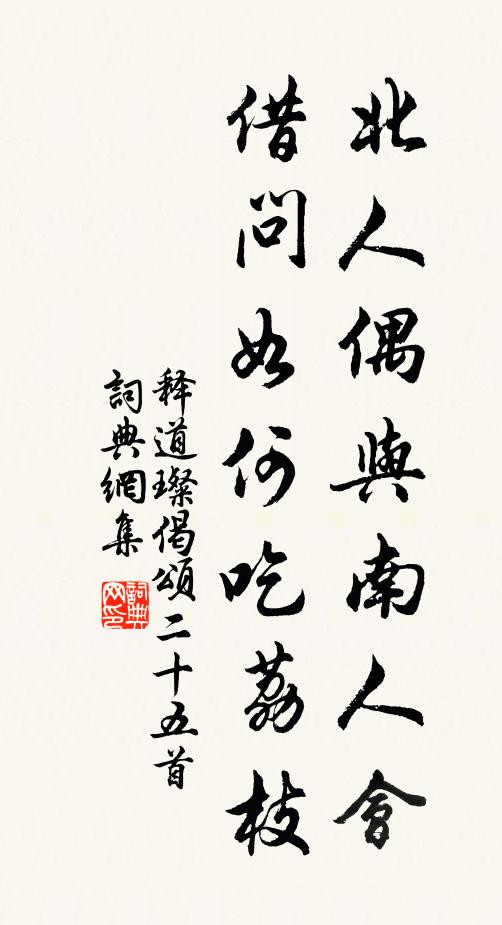 北人偶與南人會
借問如何吃荔枝
释道璨偈頌二十五首
詞典網集
詞典网印